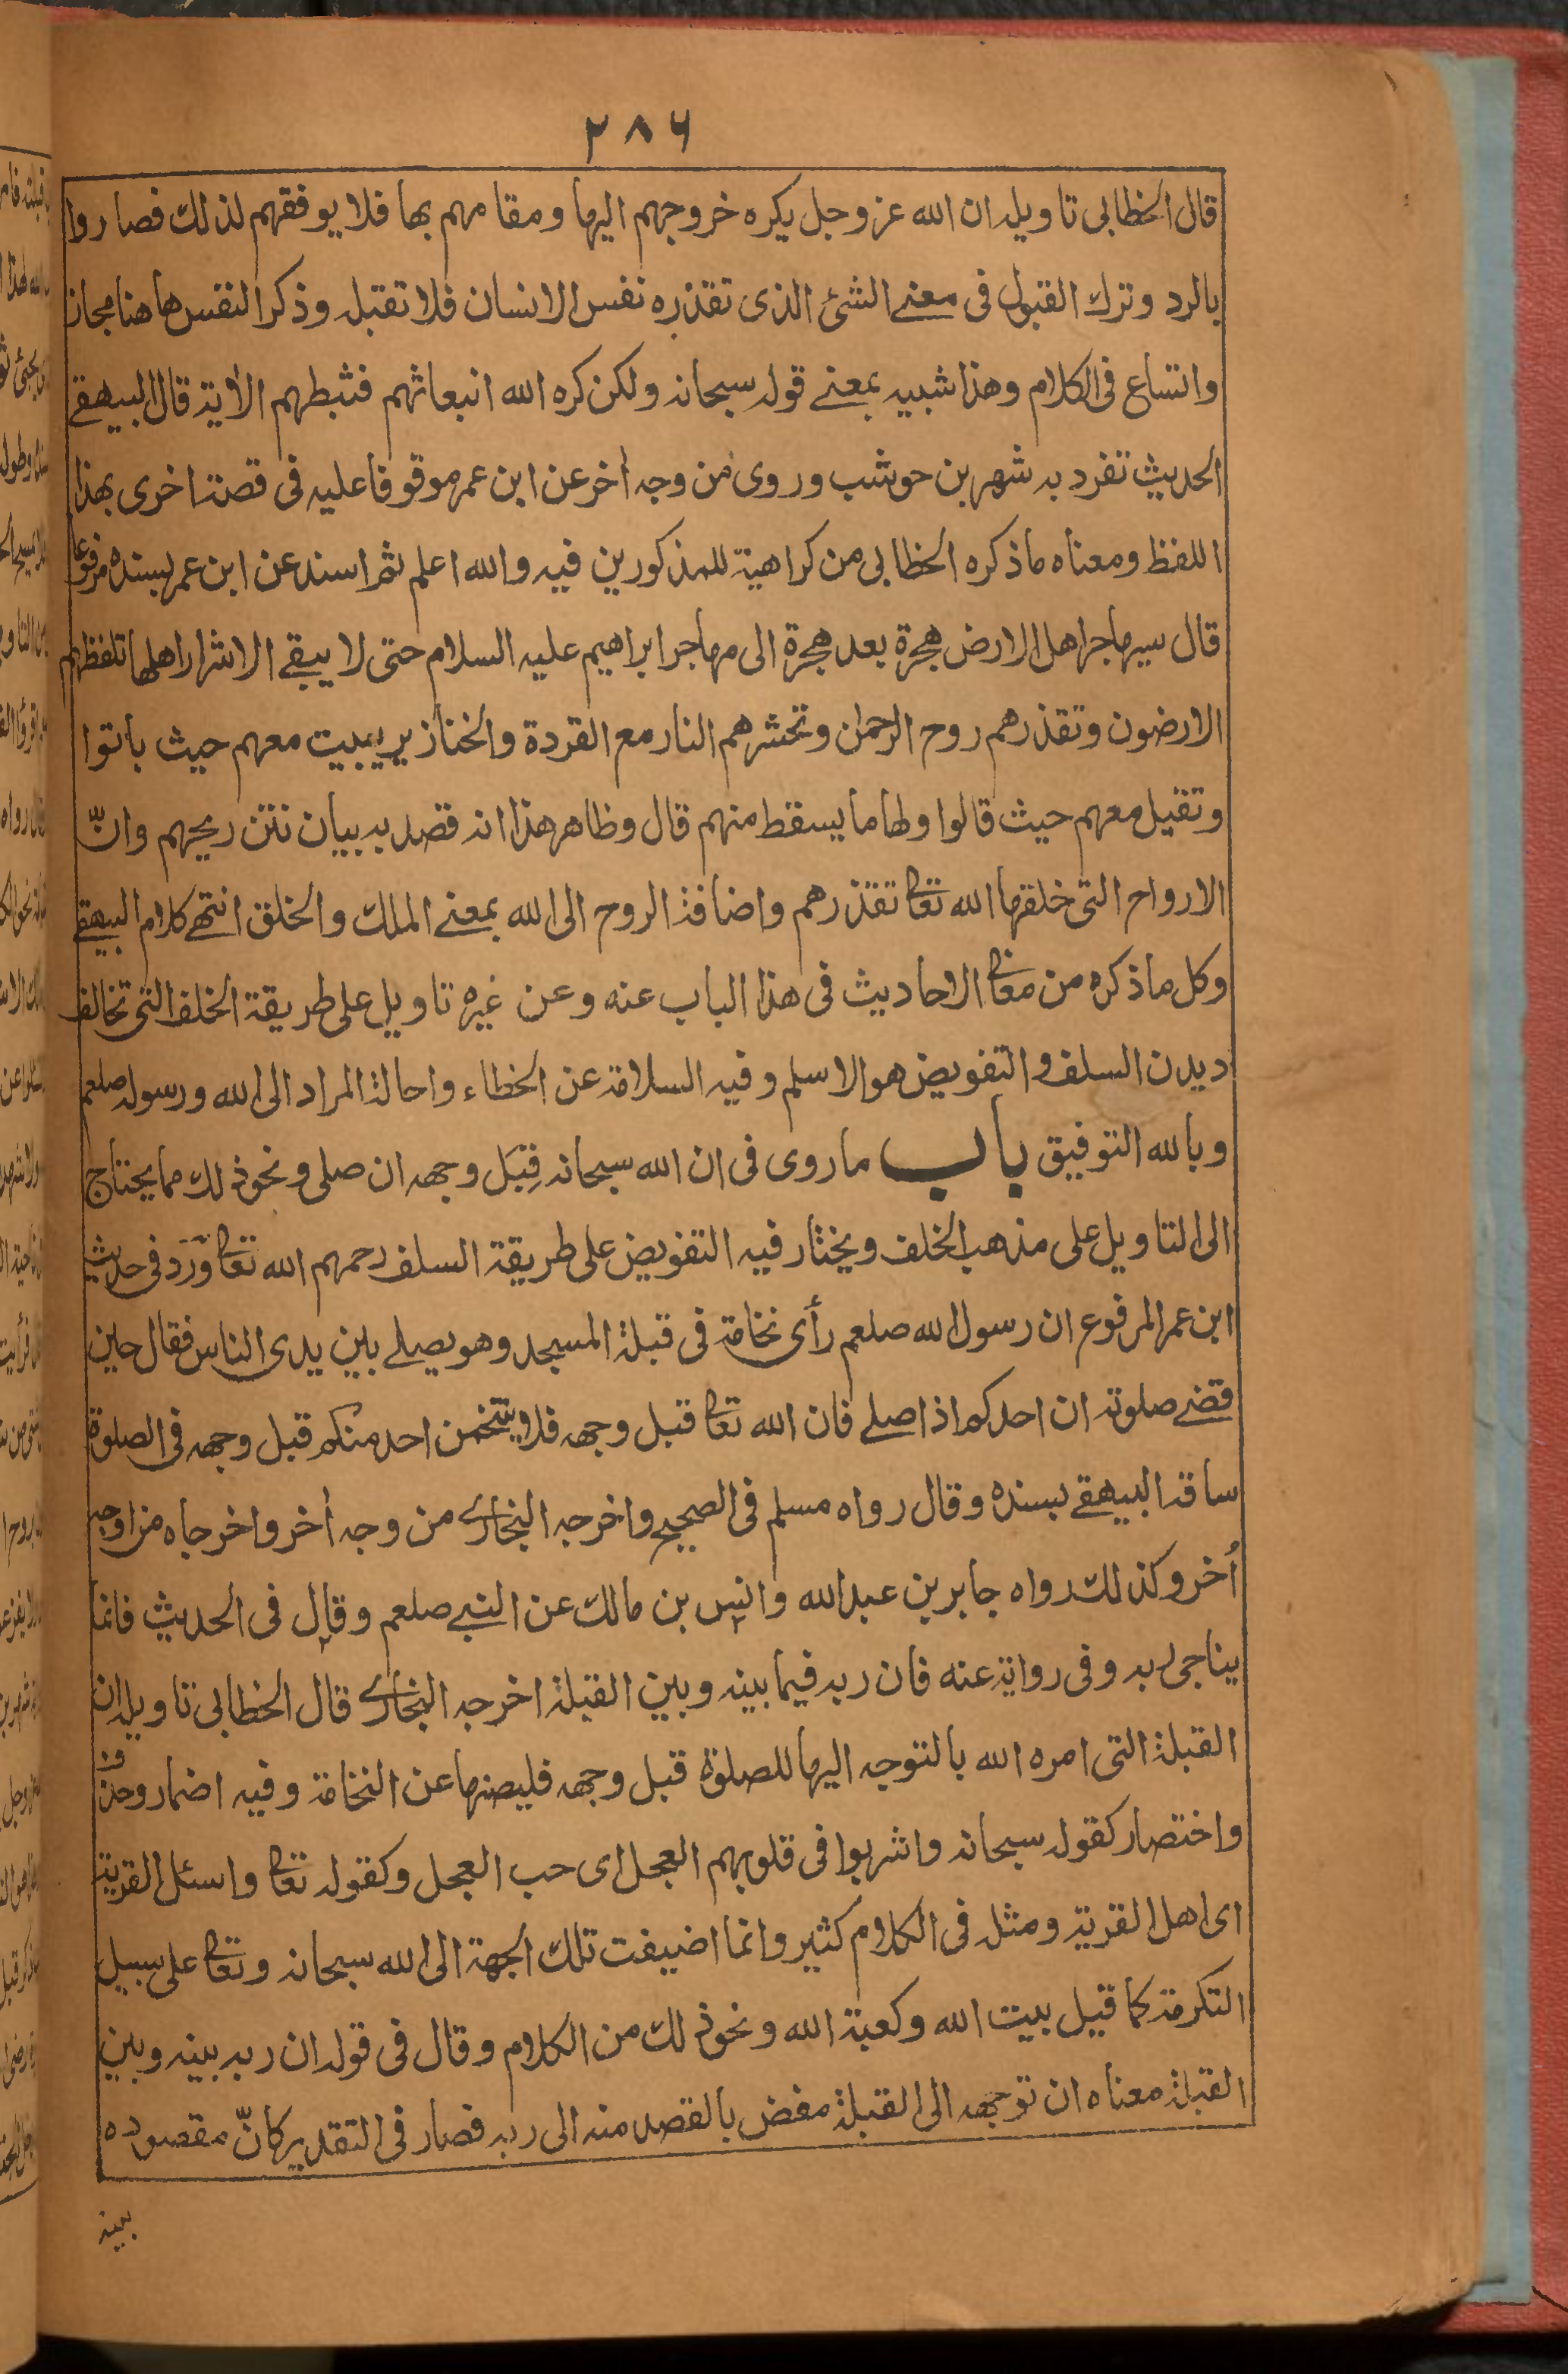 ٢٨٦
قال الخطابى تاويله ان الله عز وجل يكره خروجهم اليها ومقامهم بها فلا يوفقهم لذلك فصاروا
بالرد وترك القبول فى معنے الشئ الذى تقذره نفس الانسان فلا تقبله وذكر النفس هاهنا مجاز
واتساع فى الكلام وهذا شبيه بمعنے قوله سبحانه ولكن كره الله انبعاثهم فثبطهم الأية قال البيهقے
الحديث تفرد به شهر بن حوشب وروى من وجه أخر عن ابن عمر موقوفا عليه فى قصة اخرى بهذا
اللفظ ومعناه ماذكره الخطابى من كراهية للمذكورين فيه والله اعلم ثم اسند عن ابن عمر بسنده مرفوعا
قال سيهاجر اهل الارض هجرة بعد هجرة الى مهاجر ابراهيم عليه السلام حتى لا يبقے الا شرار اهلها تلفظهم
الارضون وتقذرهم روح الرحمان وتحشرهم النار مع القردة والخنازير يبيت معهم حيث باتوا
وتقيل معهم حيث قالوا ولها ما يسقط منهم قال وظاهر هذا انه قصد به بيان نتن ريحهم وانّ
الارواح التى خلقها الله تعا تقذرهم واضافة الروح الى الله بمعنے الملك والخلق انتهے كلام البيهقے
وكل ماذكره من معانى الاحاديث فى هذا الباب عنه وعن غيره تاويل على طريقة الخلف التى تخالف
ديدن السلف والتفويض هو الاسلم وفيه السلامة عن الخطاء واحالة المراد الى الله ورسوله صلعم
وبالله التوفيق باب ماروى فى ان الله سبحانه قِبَل وجهه ان صلى ونحو ذلك مما يحتاج
الى التاويل على مذهب الخلف ويختار فيه التفويض على طريقة السلف رحمهم الله تعا وَرَدَ فى حديث
ابن عمر المرفوع ان رسول الله صلعم رأى نخامة فى قبلة المسجد وهو يصلے بين يدى الناس فقال حين
قضے صلوته ان احدكم اذا صلے فان الله تعا قبل وجهه فلا يتنخمن احد منكم قبل وجهه فى الصلوة
ساقه البيهقے بسنده وقال رواه مسلم فى الصحيح واخرجه البخارے من وجه أخر واخرجاه من اوجه
اُخر وكذلك رواه جابر بن عبد الله وانس بن مالك عن النبے صلعم وقال فى الحديث فانما
يناجى ربه وفى رواية عنه فان ربه فيما بينه وبين القبلة اخرجه البخارے قال الخطابى تاويله ان
القبلة التى امره الله بالتوجه اليها للصلوة قبل وجهه فليصنها عن النخامة وفيه اضمار وحذف
واختصار كقوله سبحانه واشربوا فى قلوبهم العجل اى حب العجل وكقوله تعا واسئل القرية
اى اهل القرية ومثله فى الكلام كثير وانما اضيفت تلك الجهة الى الله سبحانه وتعا على سبيل
التكرمة كما قيل بيت الله وكعبة الله ونحو ذلك من الكلام وقال فى قوله ان ربه بينه وبين
القبلة معناه ان توجهه الى القبلة مفض بالقصد منه الى ربه فصار فى التقدير كانّ مقصوده
بينه